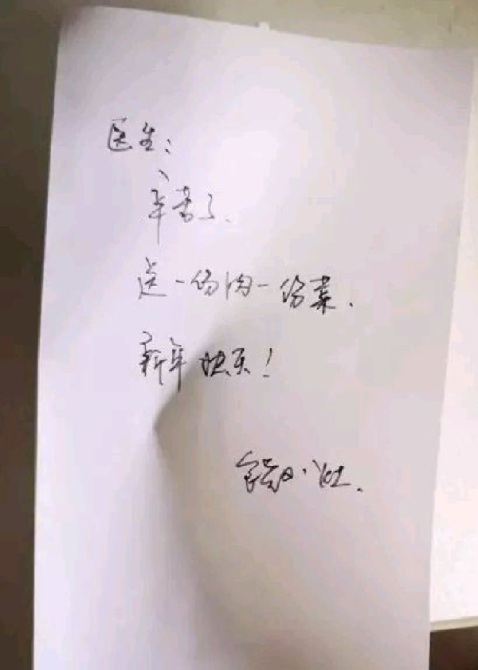 医生：
辛苦了.
送一份肉一份菜.
新年快乐！